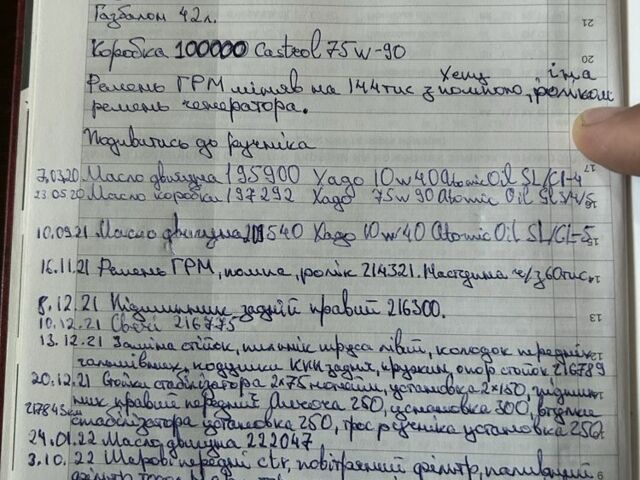 Газбалон 42 л.
Коробка 100000 Castrol 75W-90
Хепу
Ремень ГРМ міняв на 144тис з помпою, роліком
ремень генератора.
Подивитись до ручніка
7.03.20 Масло двигуна 195900 Хадо 10w40 Atomic Oil SL/CI-4
23.05.20 Масло коробки 197292 Хадо 75w90 Atomic Oil
10.09.21 Масло двигуна 540 Хадо 10w40 Atomic Oil SL/CI-
16.11.21 Ремень ГРМ, помпа, ролік 214321. ч/з 60тис
8.12.21 Підшипник задній правий 216300.
10.12.21 Свечі 216775
13.12.21 Заміна стійок, шруса лівий, колодок передніх
подушки КПП задня, опор стойок 216789
20.12.21 Стойки стабілізатора 2x75 установка 2x150,
ник правий передній 250, установка 300, втулки
217845км стабілізатора установка 250, трос ручника установка 250
24.01.22 Масло двигуна 222047
3.10.22 Шарові передні ctr, повітряний фільтр, паливний
21
20
17
15
13
9